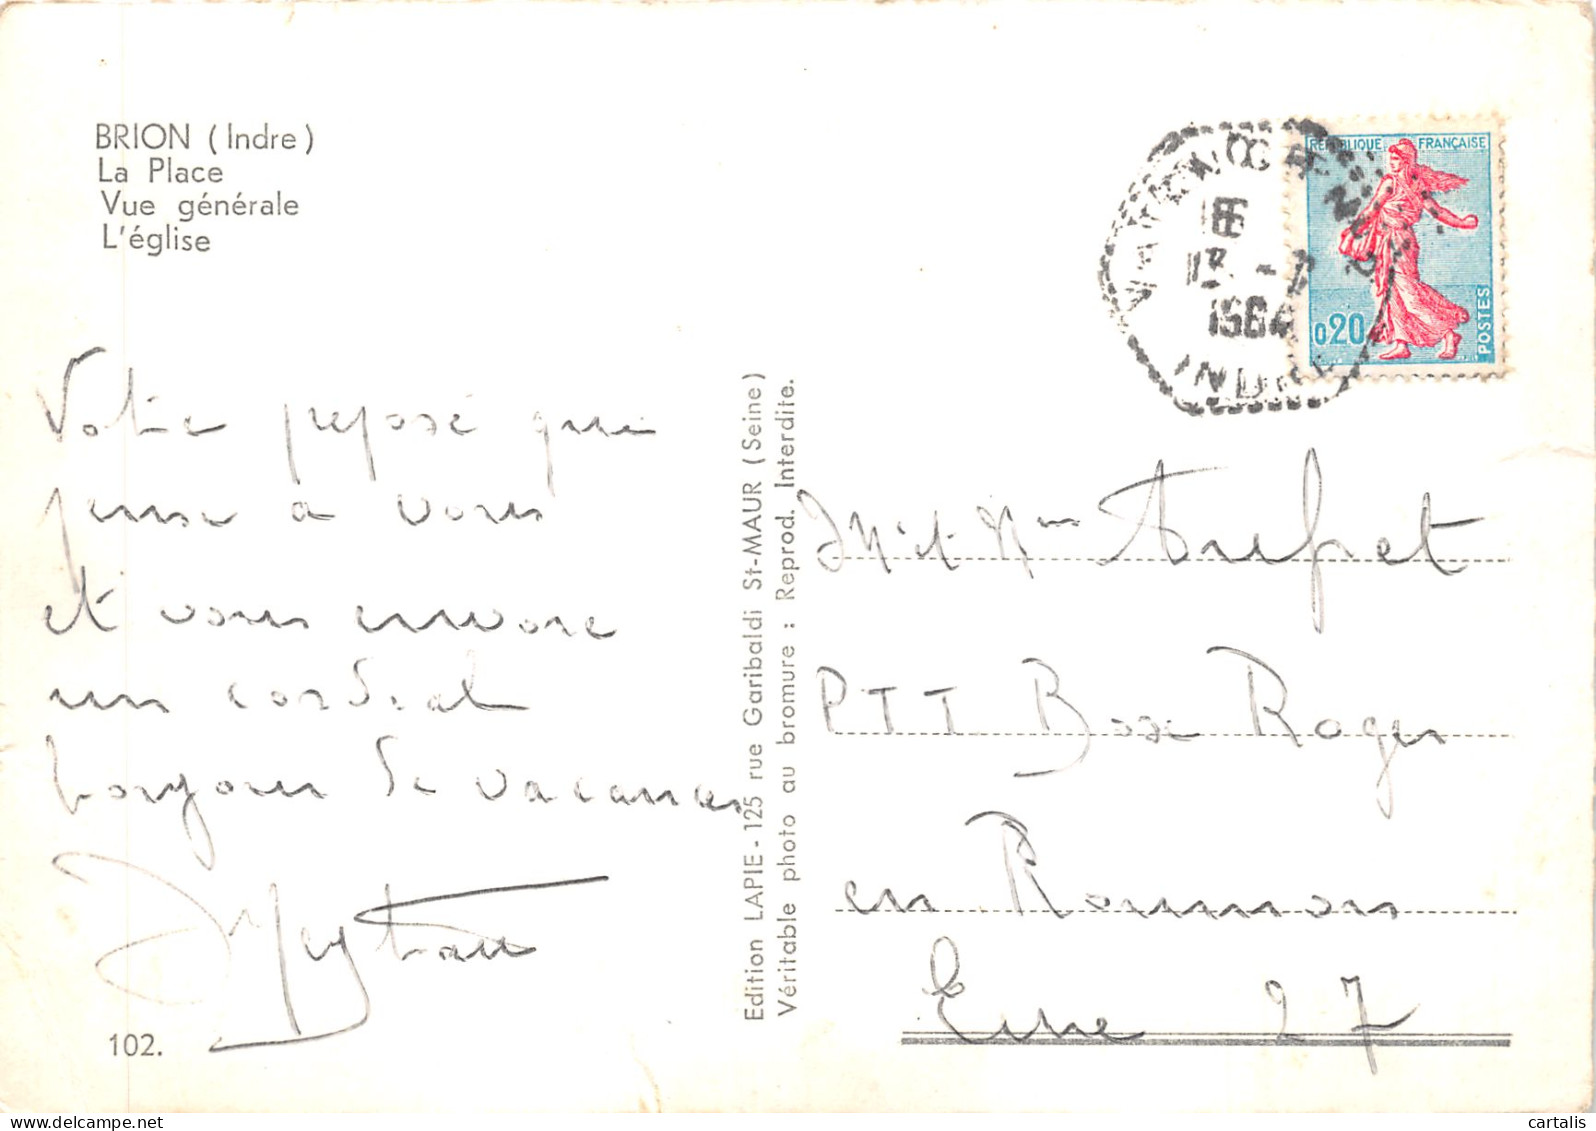 BRION (Indre)
La Place
Vue générale
L'église
REPUBLIQUE FRANÇAISE
0,20
POSTES
16
13 -
1964
INDRE
Votre preposé qui
pense a vous
et vous envoie
un cordial
bonjour de vacances
102.
Edition LAPIE - 125 rue Garibaldi St-MAUR (Seine)
Véritable photo au bromure : Reprod. Interdite.
Mr et Mme
PTT Bosc Roger
en Roumois
Eure 27
cartalis